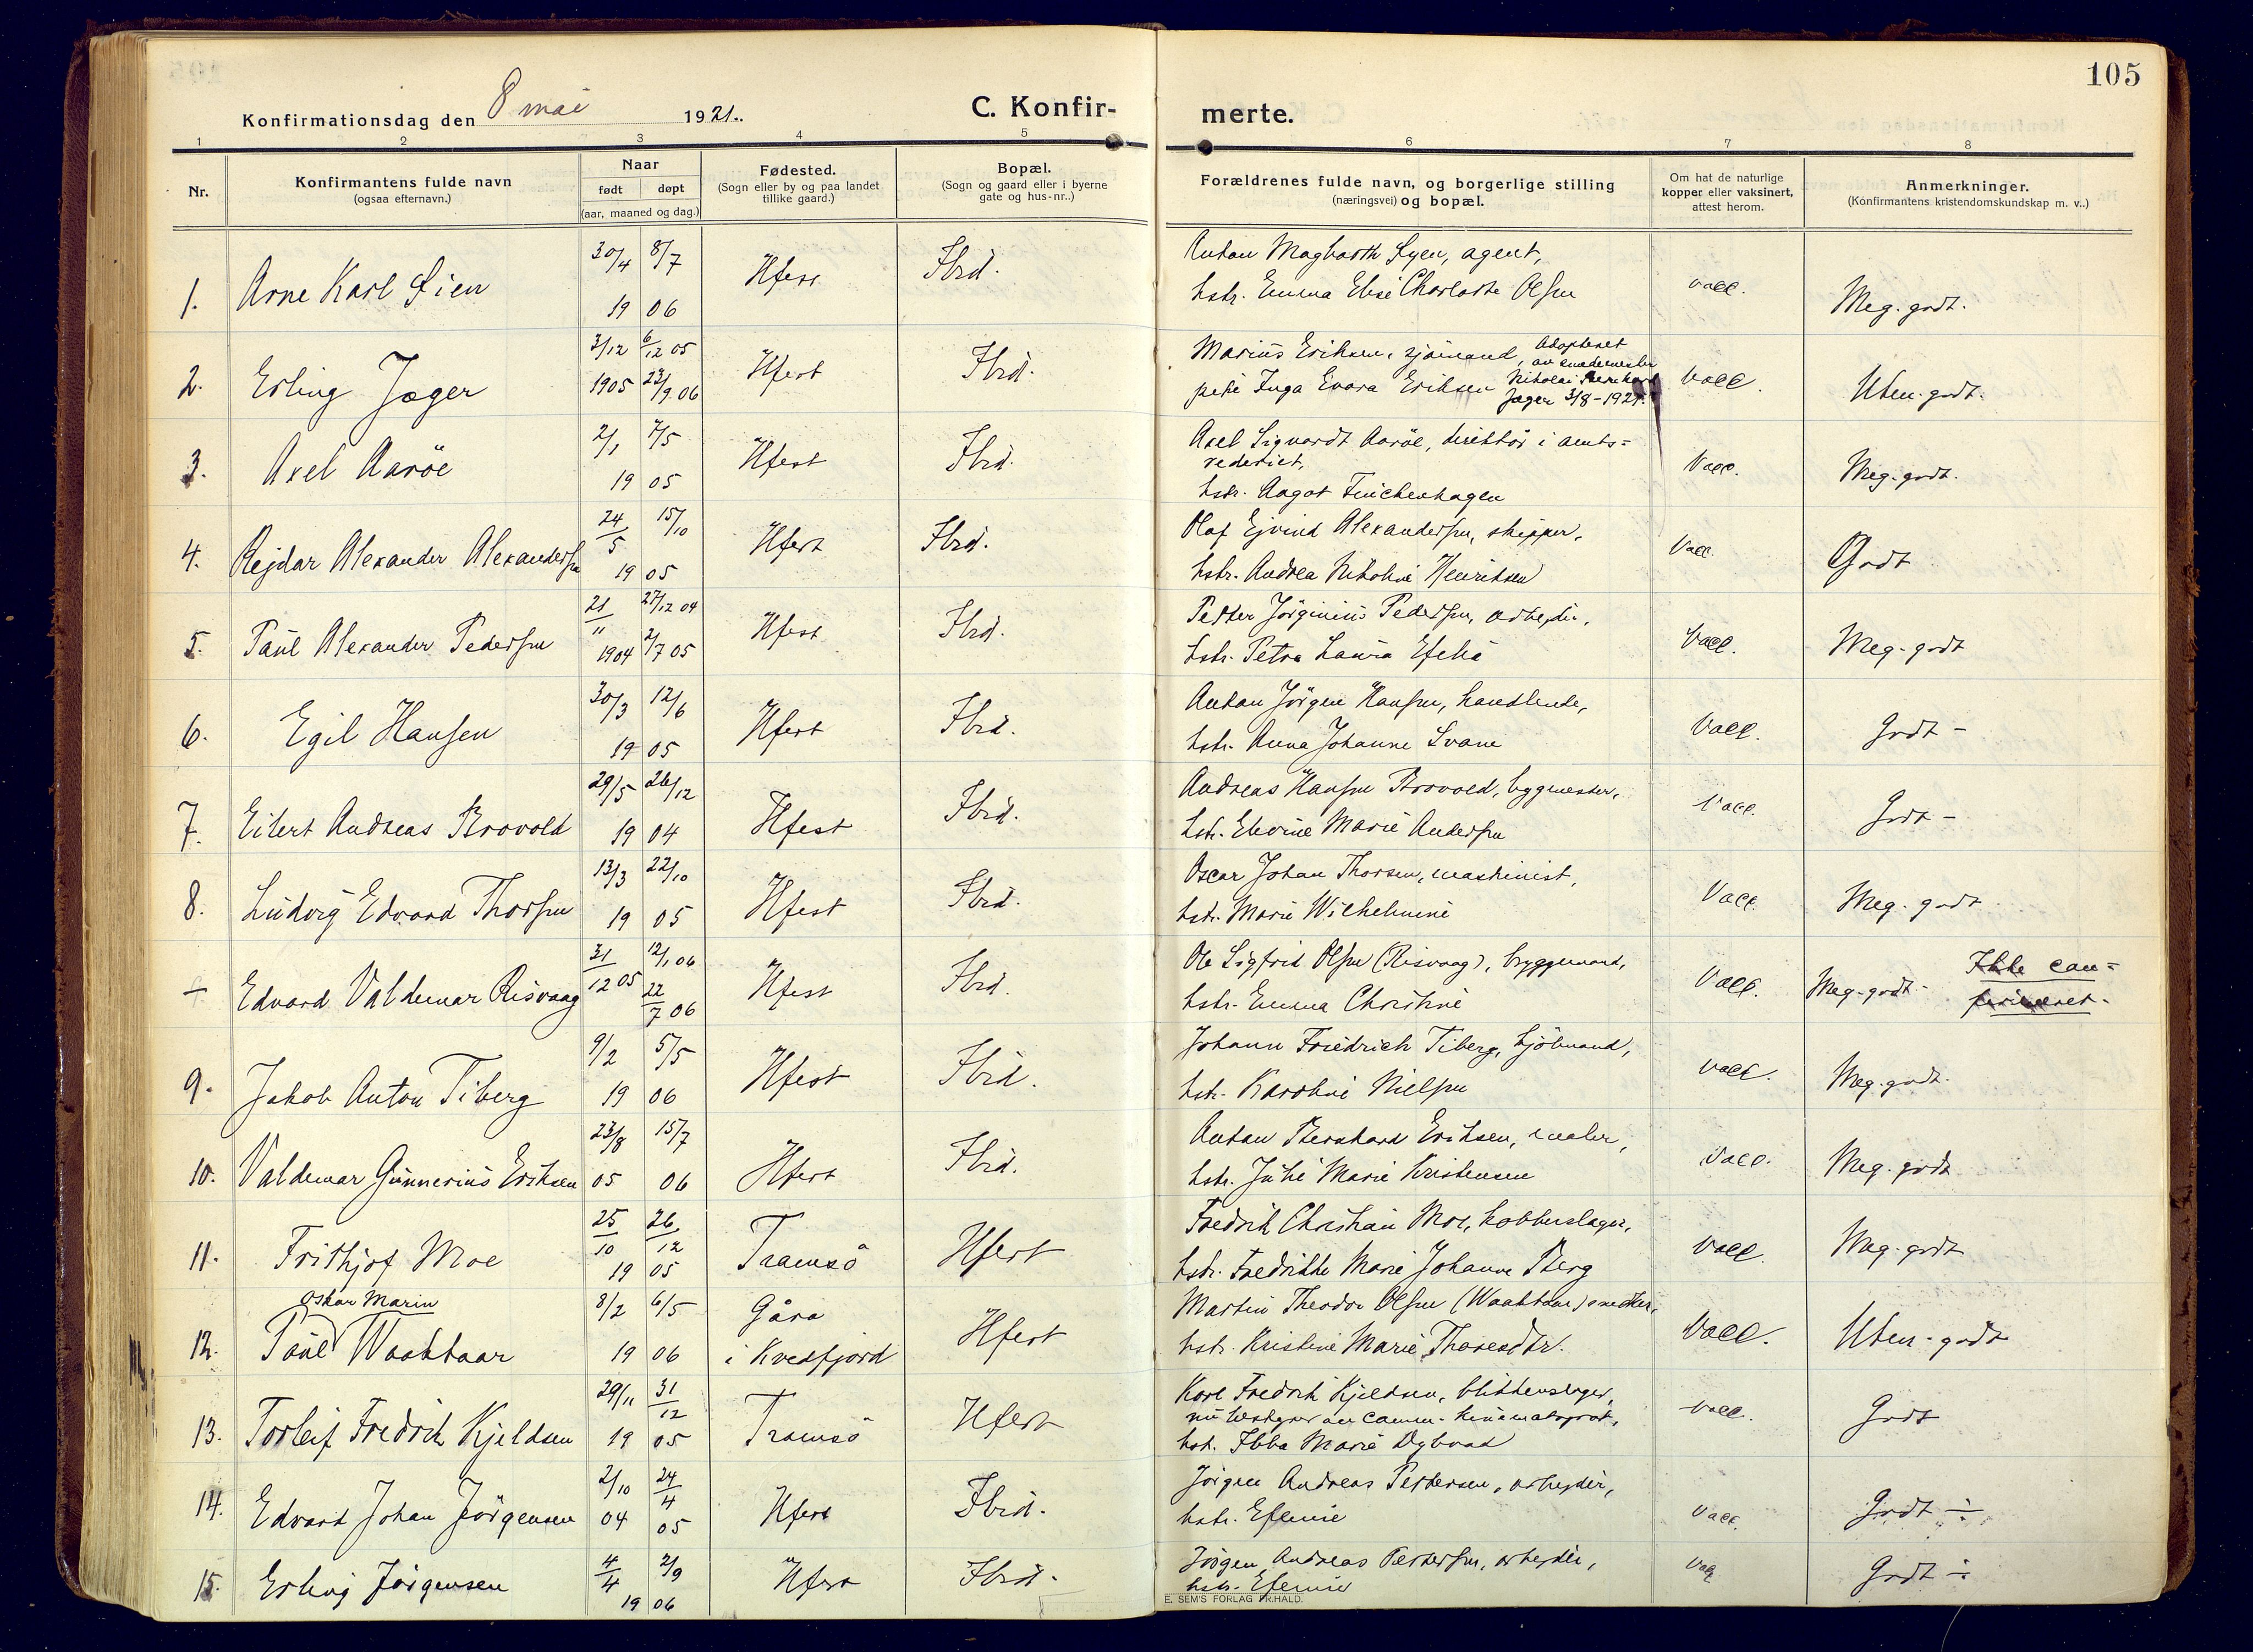 105
Konfirmationsdag den 8 mai 1921.
C. Konfir-
merte.
1 2 3 4 5 6 7 8
Nr.
Konfirmantens fulde navn
(ogsaa efternavn.)
Naar
født døpt
(aar, maaned og dag.)
Fødested.
(Sogn eller by og paa landet
tillike gaard.)
Bopæl.
(Sogn og gaard eller i byerne
gate og hus-nr..)
Forældrenes fulde navn, og borgerlige stilling
(næringsvei) og bopæl.
Om hat de naturlige
kopper eller vaksinert,
attest herom.
Anmerkninger.
(Konfirmantens kristendomskundskap m. v..)
1. Arne Karl Lien 30/4 8/7 Hfest Ibid. Anton Lyen, agent, vacc. Meg. godt.
19 06 hstr. Emma Elise Charlotte Olsen
2. Erling Jæger 3/12 6/12 05 Hfest Ibid. Marius Eriksen, sjömand, Adopteret vacc. Uten. godt.
1905 23/9 06 pike Inga Evara Eriksen Nikolai
Jæger 3/8-1921.
3. Axel Aaröe 2/1 7/5 Hfest Ibid. Axel Sigvardt Aaröe, direktör i amts= vacc. Meg. godt.
rederiet,
19 05 hstr. Aagot Finckenhagen
4. Rejdar Alexander Alexandersen 24/5 15/10 Hfest Ibid. Olaf Ejvind Alexandersen, skipper, vacc. Godt
19 05 hstr. Andrea Nikoline Henriksen
5. Paul Alexander Pedersen 21/11 27/12 04 Hfest Ibid. Petter Jörginius Pedersen, arbejder, vacc. Meg. godt
1904 2/7 05 hstr. Petra Laura
6. Egil Hansen 30/3 12/6 Hfest Ibid. Anton Jörgen Hansen, handlende, vacc. Godt -
19 05 hstr. Anna Johanne Svane
7. Eilert Andreas Brovold 29/5 26/12 Hfest Ibid. Andreas Hansen Brovold, bygmester, vacc. Godt -
19 04 hstr. Elevine Marie Andersen
8. Ludvig Edvard Thorsen 13/3 22/10 Hfest Ibid. Oscar Johan Thorsen, maskinist, vacc. Meg. godt
19 05 hstr. Marie Wilhelmine
÷ Edvard Valdemar Risvaag 31/12 05 12/1 06 Hfest Ibid. Ole Sigfrid Olsen (Risvaag), bryggemand, vacc. Meg. godt - Ikke con=
22/7 06 hstr. Emma Christine firmeret.
9. Jakob Anton Tiberg 9/2 5/5 Hfest Ibid. Johann Friedrich Tiberg, sjömand, vacc. Meg. godt.
19 06 hstr. Karoline Nielsen
10. Valdemar Gunnerius Eriksen 23/8 15/7 Hfest Ibid. Anton Bernhard Eriksen, maler, vacc. Meg. godt
05 06 hstr. Julie Marie Kristensen
11. Frithjof Moe 25/10 26/12 Tromsö Hfest Fredrik Christian Moe, kobberslager, vacc. Meg. godt
19 05 hstr. Fredrikke Marie Johanne Berg
Oskar Marin
12. Paul Waaktaar 8/2 6/5 Gåra Hfest Martin Theodor Olsen (Waaktaar) snedker, vacc. Uten. godt
19 06 i Kvedfjord hstr. Kristine Marie Thoresdtr.
13. Torleif Fredrik Kjeldsen 29/11 31/12 Tromsö Hfest Karl Fredrik Kjeldsen, blikkenslager, vacc. Godt
19 05 nu bestyrer av comm. kinematograf,
hstr. Ebba Marie Dybvad
14. Edvard Johan Jörgensen 2/10 24/4 Hfest Ibid. Jörgen Andreas Pettersen, arbejder, vacc. Godt ÷
04 05 hstr. Efemie
15. Erling Jörgensen 4/4 2/9 Hfest Ibid. Jörgen Andreas Pettersen, arbejder, vacc. Godt ÷
19 06 hstr. Efemie
E. SEM'S FORLAG FR.HALD.